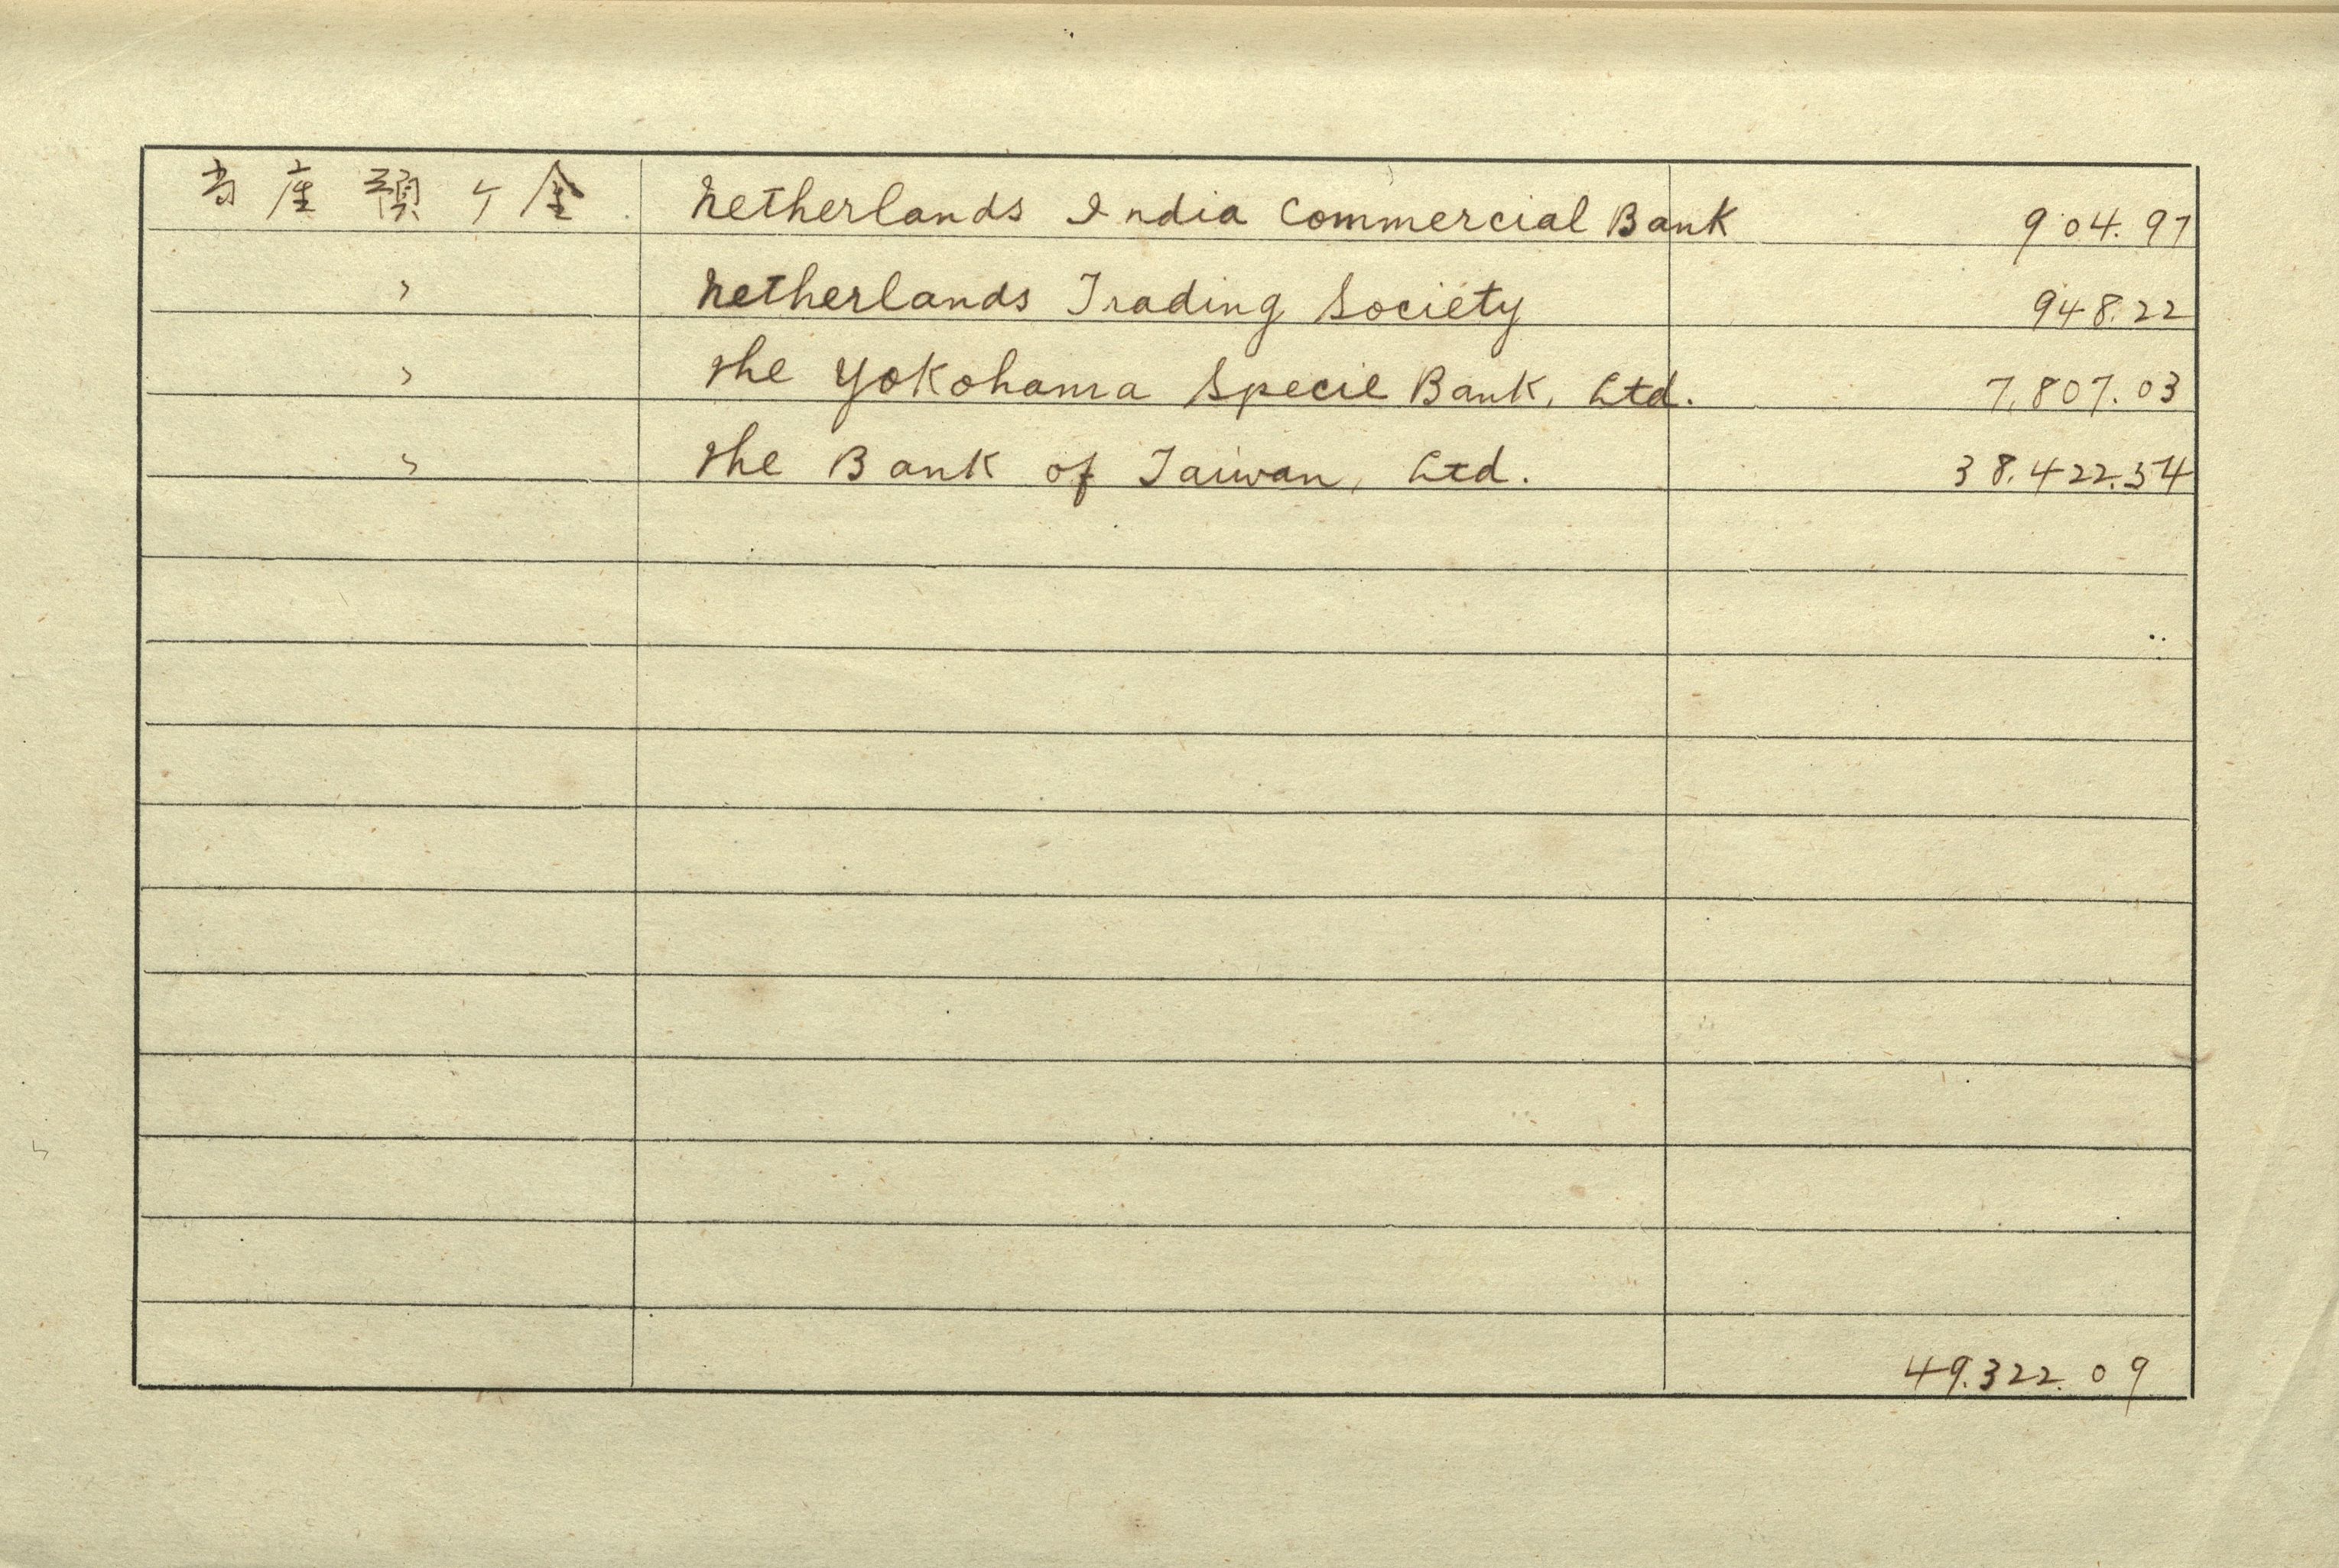 当座預ケ金 Netherlands India Commercial Bank 904.97
〃 Netherlands Trading Society 948.22
〃 The Yokohama Specie Bank, Ltd. 7,807.03
〃 The Bank of Taiwan, Ltd. 38,422.54
49,322.09